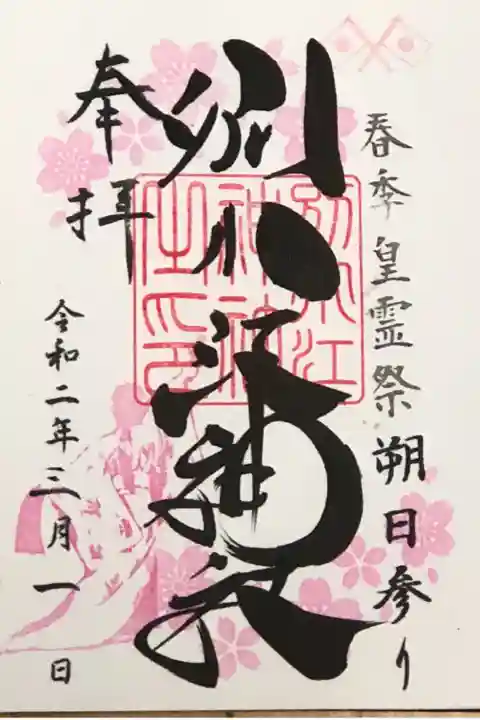 春季皇霊祭朔日参り
別小江神社
奉拝
令和二年三月一日
別小江
神社
之印